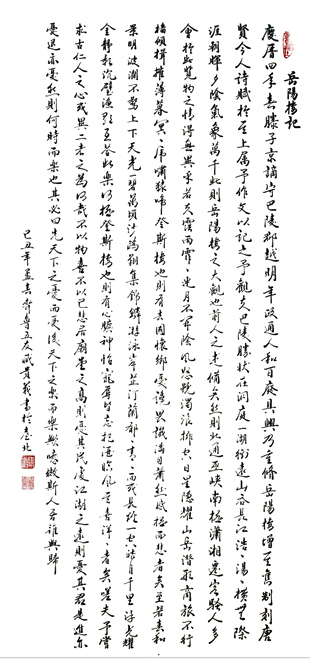 岳陽樓記
慶曆四年春滕子京謫守巴陵郡越明年政通人和百廢具興乃重修岳陽樓增其舊制刻唐
賢今人詩賦於其上屬予作文以記之予觀夫巴陵勝狀在洞庭一湖銜遠山吞長江浩浩湯湯橫無際
涯朝暉夕陰氣象萬千此則岳陽樓之大觀也前人之述備矣然則北通巫峽南極瀟湘遷客騷人多
會於此覽物之情得無異乎若夫霪雨霏霏連月不開陰風怒號濁浪排空日星隱耀山岳潛形商旅不行
檣傾楫摧薄暮冥冥虎嘯猿啼登斯樓也則有去國懷鄉憂讒畏譏滿目蕭然感極而悲者矣至若春和
景明波瀾不驚上下天光一碧萬頃沙鷗翔集錦鱗游泳岸芷汀蘭郁郁青青而或長煙一空皓月千里浮光耀
金靜影沉璧漁歌互答此樂何極登斯樓也則有心曠神怡寵辱皆忘把酒臨風其喜洋洋者矣嗟夫予嘗
求古仁人之心或異二者之為何哉不以物喜不以己悲居廟堂之高則憂其民處江湖之遠則憂其君是進亦
憂退亦憂然則何時而樂也其必曰先天下之憂而憂後天下之樂而樂歟噫微斯人吾誰與歸
己丑年孟春書於台北